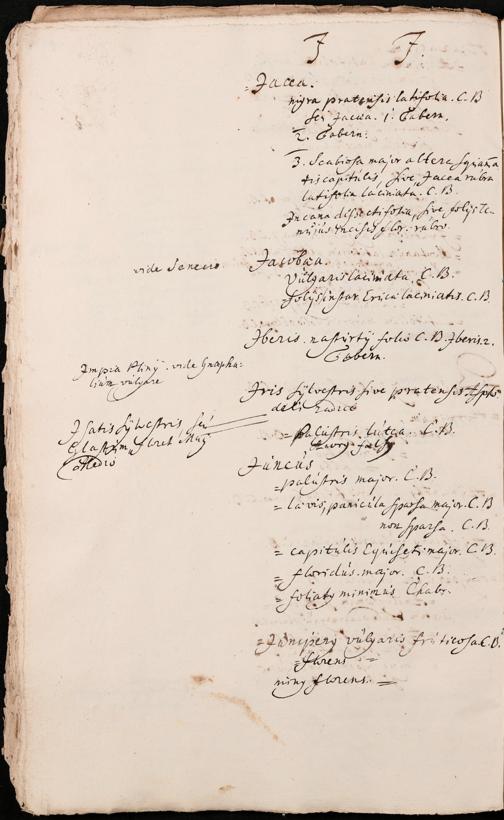 J J.
Jacea.
nigra pratensis latifolia. C. B
seu Jacea. 1. Tabern.
2. Tabern.
3. Scabiosa major altera squama
tis capitulis, sive Jacea rubra
latifolia laciniata. C. B.
Incana dissectifolia, sive folijs te
nuius incisis flor. rubro.
vide Senecio
Jacobaea.
Vulgaris laciniata C. B.
folijs instar Ericae laciniatis. C. B.
Iberis. nasturtij folio C. B. Iberis. 2.
Tabern.
Impia Plinij. vide Gnapha:
lium vulgare
Iris sylvestris sive pratensis
radice
Isatis sylvestris seu
Glastum floret Maij
medio
= palustris lutea. C. B.
Acorus falsus
Juncus
= palustris major. C. B.
= laevis, panicula sparsa major. C. B
non sparsa. C. B.
= capitulis Equiseti major. C. B.
= floridus major. C. B.
= foliatus minimus Chabr.
= Juniperus vulgaris fruticosa C. B.
= florens =
florens. =